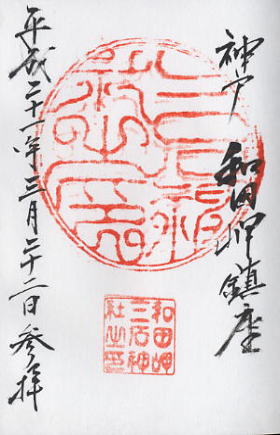 神戸 和田岬鎮座
平成二十一年三月二十二日 参拝
和田岬
三石神
社之印